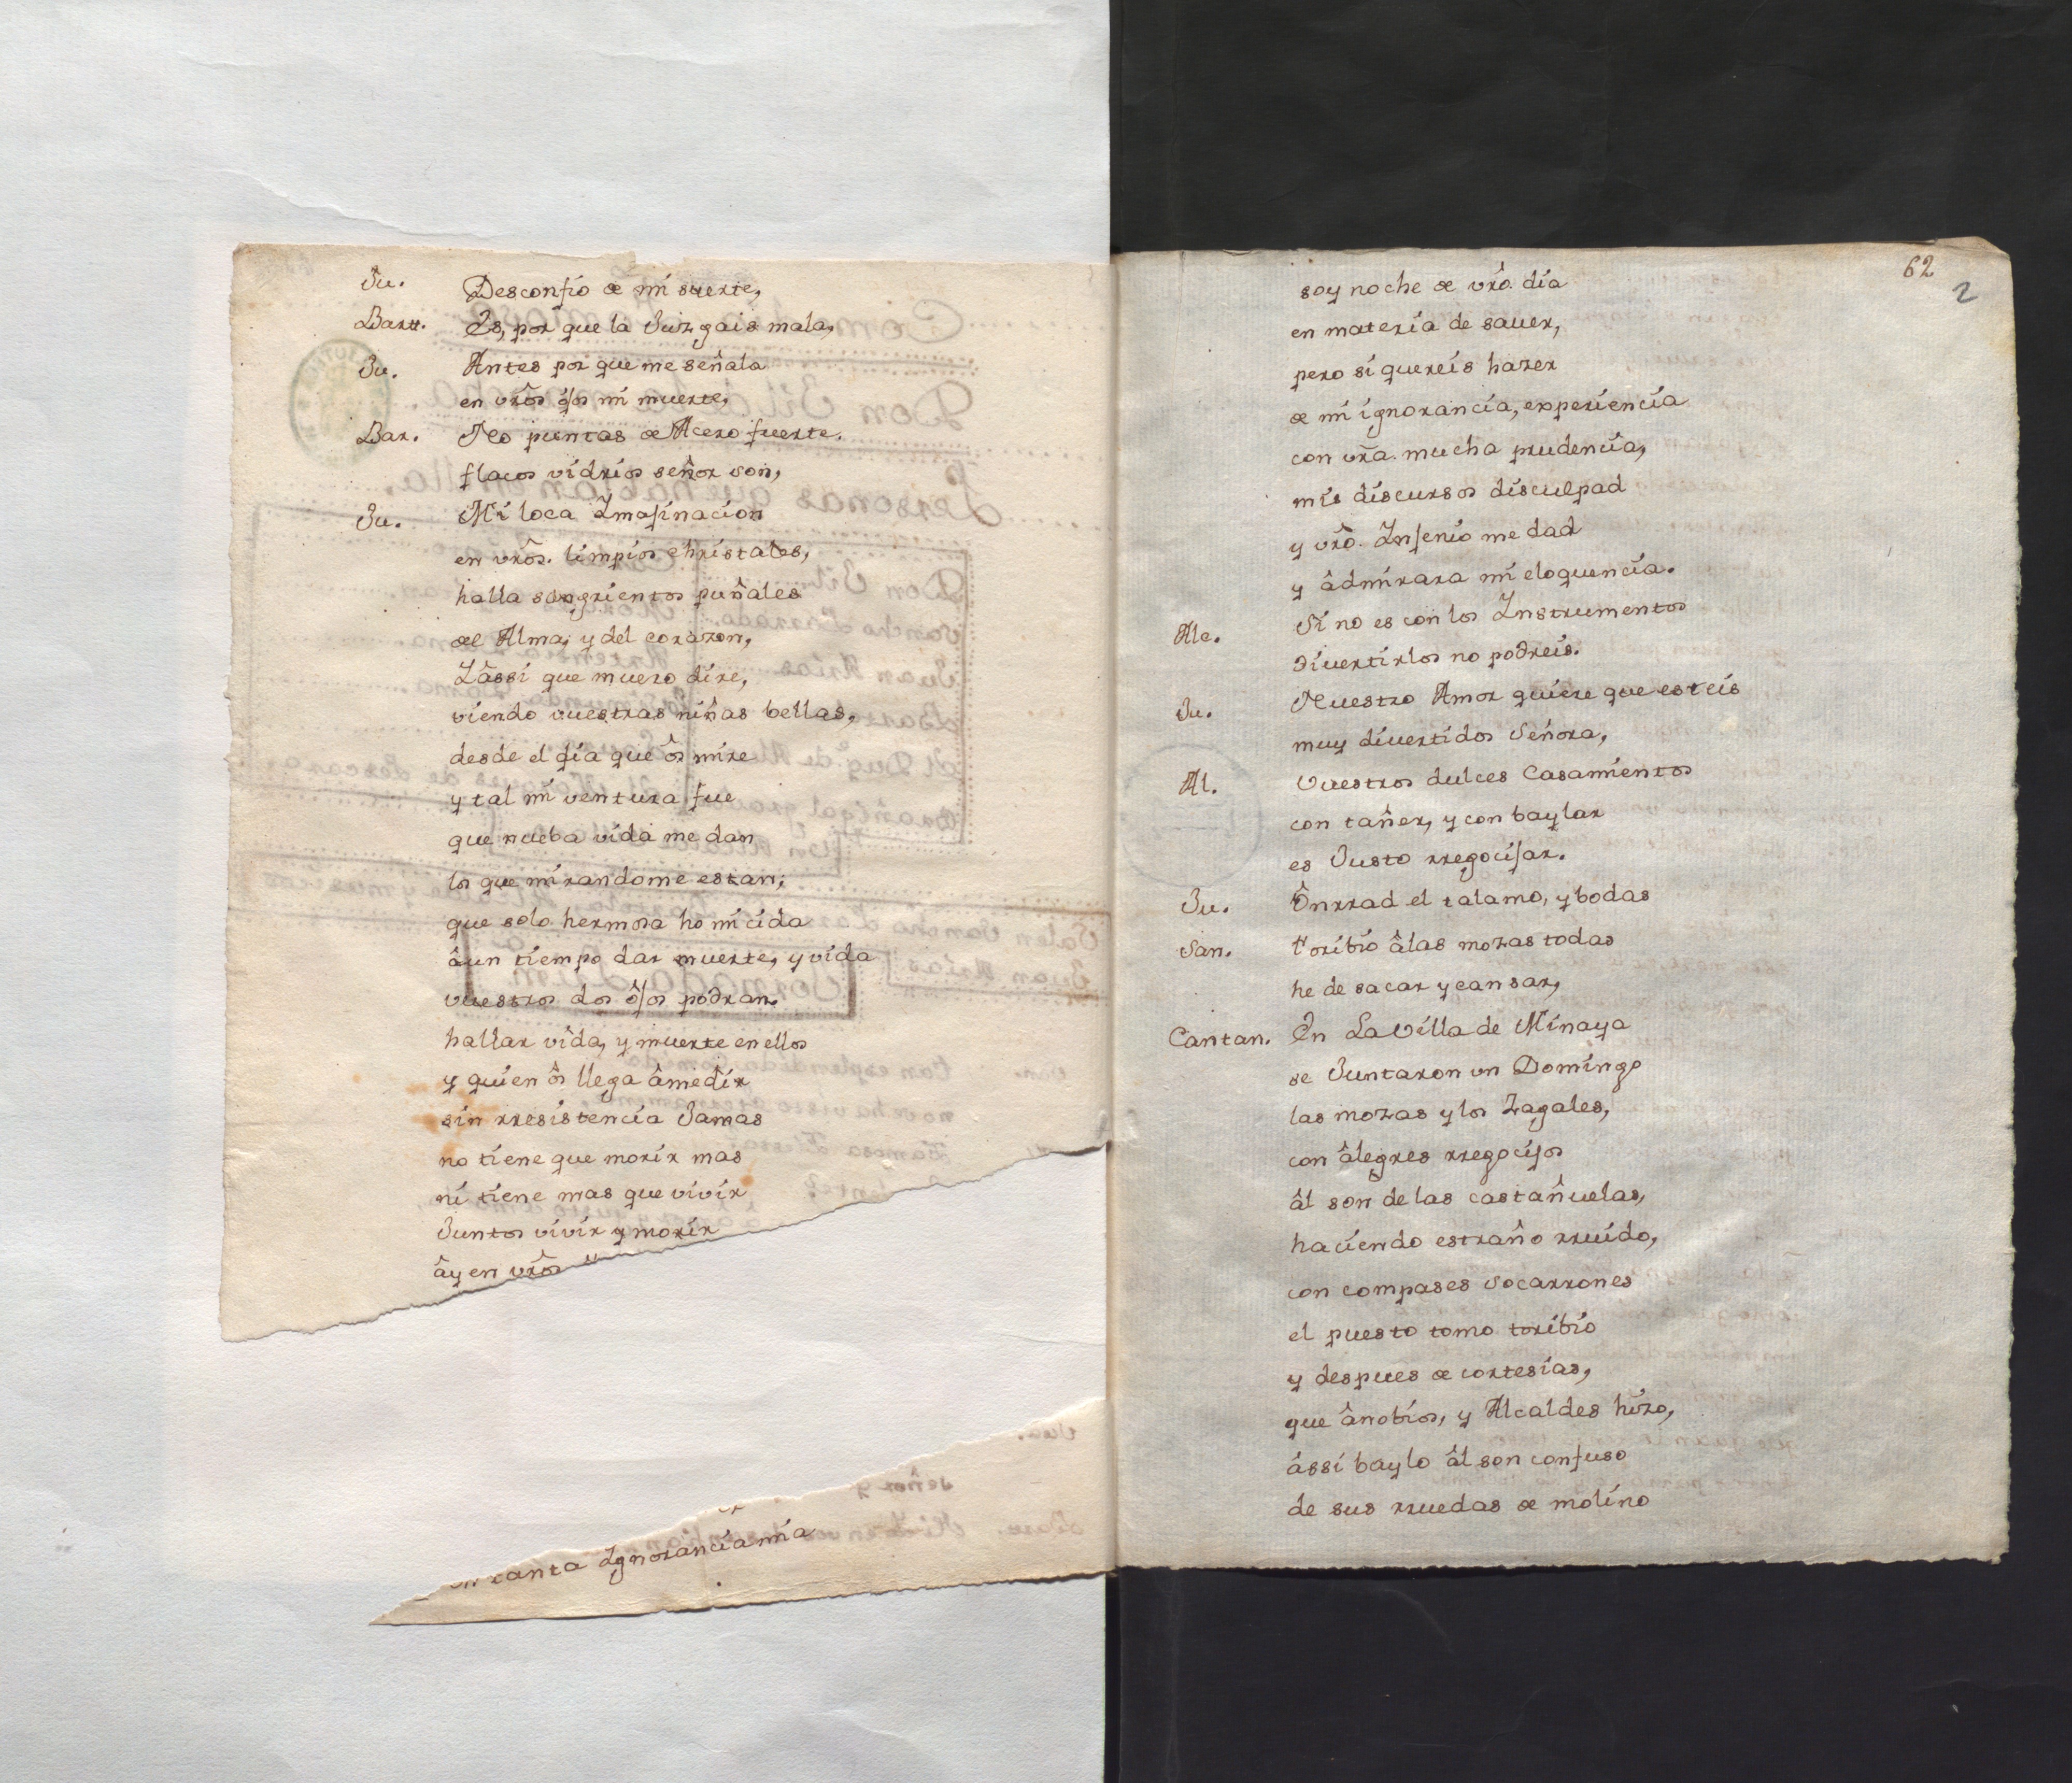 Ju. Desconfio de mi suerte,
Bart. Es, por que la Juizgais mala,
Ju. Antes por que me señala
en vrôs ôjos mi muerte,
Bar. No puntas de Acero fuerte.
flacos vidrios señor son,
Ju. Mi loca Imajinacion
en vrôs. limpios christales,
halla sangrientos puñales
del Alma, y del corazon,
I âssi que muero dire,
viendo vuestras niñas bellas,
desde el dia que ôs mire
y tal mi ventura fue
que nueba vida me dan
los que mirandome estan;
que solo hermosa homicida
âun tiempo dar muerte, y vida
vuestros dos ôjos podran.
hallar vida, y muerte en ellos
y quien ôs llega âmedir
sin rresistencia Jamas
no tiene que morir mas
ni tiene mas que vivir
Juntos vivir y morir
ây en vrôs
tanta Ignorancia mia
62
2
soy noche de vrô. dia
en materia de sauer,
pero si quereis hazer
de mi ignorancia, experiencia
con vrâ. mucha prudencia,
mis discursos disculpad
y vrô. Injenio me dad
y âdmirara mi eloquencia.
Alc. Si no es con los Instrumentos
divertirlos no podreis.
Ju. Nuestro Amor quiere que esteis
muy divertidos Señora,
Al. Vuestros dulces Casamientos
con tañer, y con baylar
es Justo rregocijar.
Ju. Ônrrad el talamo, y bodas
San. toribio âlas mozas todas
he de sacar y cansar,
Cantan. En La Villa de Minaya
se Juntaron vn Domingo
las mozas y los Zagales,
con âlegres rregocijos
âl son de las castañuelas,
haciendo estraño rruido,
con compases socarrones
el puesto tomo toribio
y despues de cortesias,
que ânobios, y Alcaldes hizo,
ássi baylo âl son confuso
de sus rruedas de molino